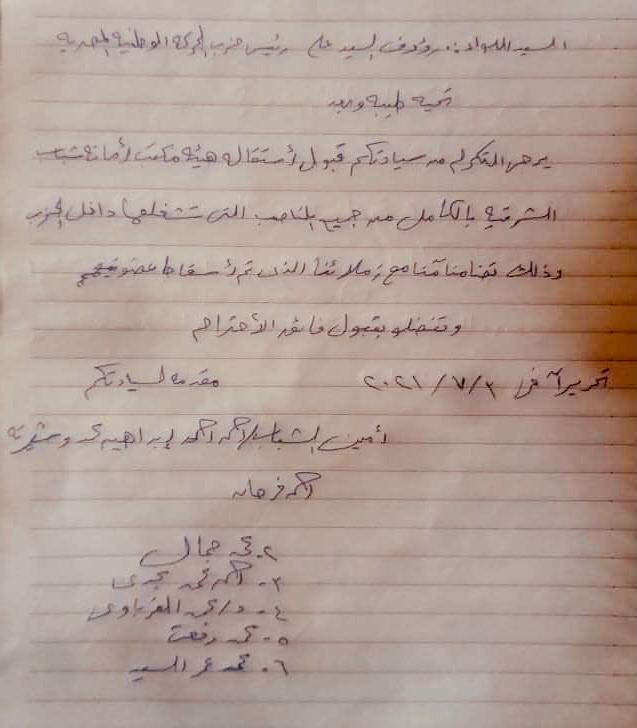 السيد اللواء / رؤوف السيد علي رئيس حزب الحركة الوطنية المصرية
تحية طيبة وبعد
يرجى التكرم من سيادتكم قبول أستقالة هيئة مكتب أمانة شباب
الشرقية بالكامل من جميع المناصب التى تشغلها داخل الحزب
وذلك تضامناً منا مع زملائنا الذى تم أسقاط عضويتهم
وتفضلو بقبول فائق الأحترام
تحريراً فى ٣ / ٧ / ٢٠٢١ مقدمه لسيادتكم
أمين الشباب / احمد احمد إبراهيم
احمد فرحات
٢ - محمد جمال
٣ - احمد محمد مجدى
٤ - د / محمد
٥ - محمد رفعت
٦ - محمد عمر السيد